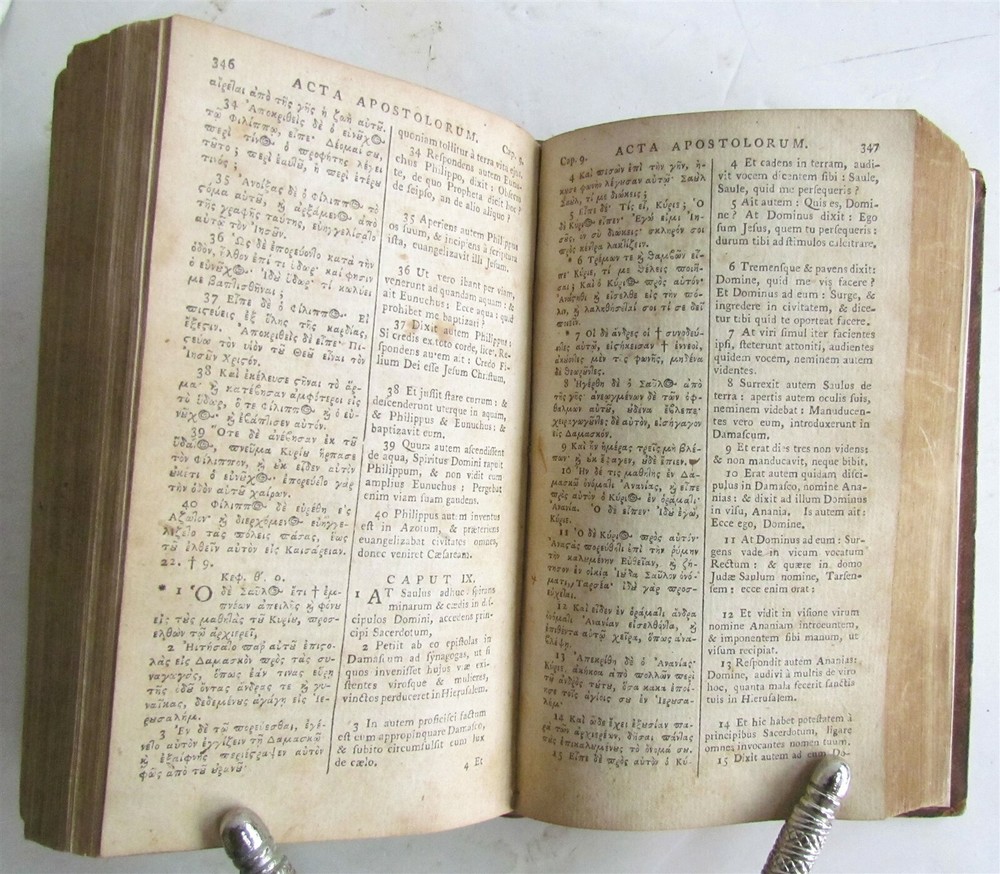 346
ACTA APOSTOLORUM.
Cap. 9.
αἴρεται ἀπὸ τῆς γῆς ἡ ζωὴ αὐτῦ.
34 Ἀποκριθεὶς δὲ ὁ εὐνῦχος
τῷ Φιλίππῳ, εἶπε· Δέομαί σȣ,
περὶ τίνος ὁ προφήτης λέγει
τῦτο; περὶ ἑαυτῦ, ἢ περὶ ἑτέρȣ
τινός;
35 Ἀνοίξας δὲ ὁ Φίλιππος τὸ
ςόμα αὑτῦ, ϗ ἀρξάμενος ἀπὸ
τῆς γραφῆς ταύτης, εὐηγγελίσατο
αὐτῷ τὸν Ἰησῦν.
36 Ὡς δὲ ἐπορεύοντο κατὰ τὴν
ὁδὸν, ἦλθον ἐπί τι ὕδωρ· καί φησιν
ὁ εὐνῦχος· Ἰδȣ̀ ὕδωρ· τί κωλύει
με βαπτισθῆναι;
37 Εἶπε δὲ ὁ Φίλιππος· Εἰ
πιςεύεις ἐξ ὅλης τῆς καρδίας,
ἔξεςιν. Ἀποκριθεὶς δὲ εἶπε· Πι-
ςεύω τὸν υἱὸν τῦ Θεῦ εἶναι τὸν
Ἰησῦν Χριςόν.
38 Καὶ ἐκέλευσε ςῆναι τὸ ἅρ-
μα· ϗ κατέβησαν ἀμφότεροι εἰς
τὸ ὕδωρ, ὅ τε Φίλιππος ϗ ὁ εὐ-
νῦχος· ϗ ἐβάπτισεν αὐτόν.
39 Ὅτε δὲ ἀνέβησαν ἐκ τῦ
ὕδατος, πνεῦμα Κυρίȣ ἥρπασε
τὸν Φίλιππον, ϗ ȣ̓κ εἶδεν αὐτὸν
ȣ̓κέτι ὁ εὐνῦχος· ἐπορεύετο γὰρ
τὴν ὁδὸν αὑτῦ χαίρων.
40 Φίλιππος δὲ εὑρέθη εἰς
Ἄζωτον· ϗ διερχόμενος εὐηγγε-
λίζετο τὰς πόλεις πάσας, ἕως
τῦ ἐλθεῖν αὐτὸν εἰς Καισάρειαν.
22. † 9.
Κεφ. θ΄. 9.
* 1 Ὁ δὲ Σαῦλος ἔτι † ἐμ-
πνέων ἀπειλῆς ϗ φόνȣ
εἰς τȣ̀ς μαθητὰς τῦ Κυρίȣ, προσ-
ελθὼν τῷ ἀρχιερεῖ,
2 Ἠτήσατο παρ' αὐτῦ ἐπιςο-
λὰς εἰς Δαμασκὸν πρὸς τὰς συ-
ναγωγὰς, ὅπως ἐάν τινας εὕρῃ
τῆς ὁδῦ ὄντας ἄνδρας τε ϗ γυ-
ναῖκας, δεδεμένȣς ἀγάγῃ εἰς Ἱε-
ρȣσαλήμ.
3 Ἐν δὲ τῷ πορεύεσθαι, ἐγέ-
νετο αὐτὸν ἐγγίζειν τῇ Δαμασκῷ·
ϗ ἐξαίφνης περιήςραψεν αὐτὸν
φῶς ἀπὸ τῦ ȣ̓ρανῦ·
quoniam tollitur à terra vita ejus.
34 Respondens autem Eunu-
chus Philippo, dixit: Obsecro
te, de quo Propheta dicit hoc?
de seipso, an de alio aliquo?
35 Aperiens autem Philippus
os suum, & incipiens à scriptura
ista, euangelizavit illi Jesum.
36 Ut vero ibant per viam,
venerunt ad quandam aquam: &
ait Eunuchus: Ecce aqua: quid
prohibet me baptizari?
37 Dixit autem Philippus:
Si credis ex toto corde, licet. Re-
spondens autem ait: Credo Fi-
lium Dei esse Jesum Christum.
38 Et jussit stare currum: &
descenderunt uterque in aquam,
& Philippus & Eunuchus: &
baptizavit eum.
39 Quum autem ascendissent
de aqua, Spiritus Domini rapuit
Philippum, & non vidit eum
amplius Eunuchus: Pergebat
enim viam suam gaudens.
40 Philippus autem inventus
est in Azotum, & præteriens
euangelizabat civitates omnes,
donec veniret Cæsaream.
CAPUT IX.
1 AT Saulus adhuc spirans
minarum & cædis in dis-
cipulos Domini, accedens prin-
cipi Sacerdotum,
2 Petiit ab eo epistolas in
Damascum ad synagogas, ut si
quos invenisset hujus viæ exi-
stentes virosque & mulieres,
vinctos perduceret in Hierusalem.
3 In autem proficisci factum
est eum appropinquare Damasco,
& subito circumfulsit eum lux
de cælo.
4 Et
ACTA APOSTOLORUM.
347
Cap. 9.
4 Καὶ πεσὼν ἐπὶ τὴν γῆν, ἤ-
κȣσε φωνὴν λέγȣσαν αὐτῷ· Σαὺλ
Σαὺλ, τί με διώκεις;
5 Εἶπε δέ· Τίς εἶ, Κύριε; Ὁ
δὲ Κύριος εἶπεν· Ἐγώ εἰμι Ἰη-
σῦς, ὃν σὺ διώκεις· σκληρόν σοι
πρὸς κέντρα λακτίζειν.
* 6 Τρέμων τε ϗ θαμβῶν εἶ-
πε· Κύριε, τί με θέλεις ποιῆ-
σαι; Καὶ ὁ Κύριος πρὸς αὐτόν·
Ἀνάςηθι ϗ εἴσελθε εἰς τὴν πό-
λιν, ϗ λαληθήσεταί σοι τί σε δεῖ
ποιεῖν.
* 7 Οἱ δὲ ἄνδρες οἱ † συνοδεύ-
οντες αὐτῷ, εἱςήκεισαν † ἐννεοὶ,
ἀκȣ́οντες μὲν τῆς φωνῆς, μηδένα
δὲ θεωρῦντες.
8 Ἠγέρθη δὲ ὁ Σαῦλος ἀπὸ
τῆς γῆς· ἀνεῳγμένων δὲ τῶν ὀφ-
θαλμῶν αὐτῦ, ȣ̓δένα ἔβλεπε·
χειραγωγῦντες δὲ αὐτὸν, εἰσήγαγον
εἰς Δαμασκόν.
9 Καὶ ἦν ἡμέρας τρεῖς μὴ βλέ-
πων· ϗ ȣ̓κ ἔφαγεν, ȣ̓δὲ ἔπιεν.
10 Ἦν δέ τις μαθητὴς ἐν Δα-
μασκῷ ὀνόματι Ἀνανίας, ϗ εἶπε
πρὸς αὐτὸν ὁ Κύριος ἐν ὁράματι·
Ἀνανία. Ὁ δὲ εἶπεν· Ἰδȣ̀ ἐγὼ,
Κύριε.
11 Ὁ δὲ Κύριος πρὸς αὐτόν·
Ἀναςὰς πορεύθητι ἐπὶ τὴν ῥύμην
τὴν καλȣμένην Εὐθεῖαν, ϗ ζή-
τησον ἐν οἰκίᾳ Ἰȣ́δα Σαῦλον ὀνό-
ματι, Ταρσέα· ἰδȣ̀ γὰρ προσ-
εύχεται.
12 Καὶ εἶδεν ἐν ὁράματι ἄνδρα
ὀνόματι Ἀνανίαν εἰσελθόντα, ϗ
ἐπιθέντα αὐτῷ χεῖρα, ὅπως ἀνα-
βλέψῃ.
13 Ἀπεκρίθη δὲ ὁ Ἀνανίας·
Κύριε, ἀκήκοα ἀπὸ πολλῶν περὶ
τῦ ἀνδρὸς τȣ́τȣ, ὅσα κακὰ ἐποί-
ησε τοῖς ἁγίοις σȣ ἐν Ἱερȣσα-
λήμ.
14 Καὶ ὧδε ἔχει ἐξȣσίαν πα-
ρὰ τῶν ἀρχιερέων, δῆσαι πάντας
τȣ̀ς ἐπικαλȣμένȣς τὸ ὄνομά σȣ.
15 Εἶπε δὲ πρὸς αὐτὸν ὁ Κύ-
4 Et cadens in terram, audi-
vit vocem dicentem sibi: Saule,
Saule, quid me persequeris?
5 Ait autem: Quis es, Domi-
ne? At Dominus dixit: Ego
sum Jesus, quem tu persequeris:
durum tibi ad stimulos calcitrare.
6 Tremensque & pavens dixit:
Domine, quid me vis facere?
Et Dominus ad eum: Surge, &
ingredere in civitatem, & dice-
tur tibi quid te oporteat facere.
7 At viri simul iter facientes
ipsi, steterunt attoniti, audientes
quidem vocem, neminem autem
videntes.
8 Surrexit autem Saulus de
terra: apertis autem oculis suis,
neminem videbat: Manuducen-
tes vero eum, introduxerunt in
Damascum.
9 Et erat dies tres non videns:
& non manducavit, neque bibit.
10 Erat autem quidam disci-
pulus in Damasco, nomine Ana-
nias: & dixit ad illum Dominus
in visu, Anania. Is autem ait:
Ecce ego, Domine.
11 At Dominus ad eum: Sur-
gens vade in vicum vocatum
Rectum: & quære in domo
Judæ Saulum nomine, Tarsen-
sem: ecce enim orat:
12 Et vidit in visione virum
nomine Ananiam introeuntem,
& imponentem sibi manum, ut
visum recipiat.
13 Respondit autem Ananias:
Domine, audivi à multis de viro
hoc, quanta mala fecerit sanctis
tuis in Hierusalem.
14 Et hic habet potestatem à
principibus Sacerdotum, ligare
omnes invocantes nomen tuum.
15 Dixit autem ad eum Do-